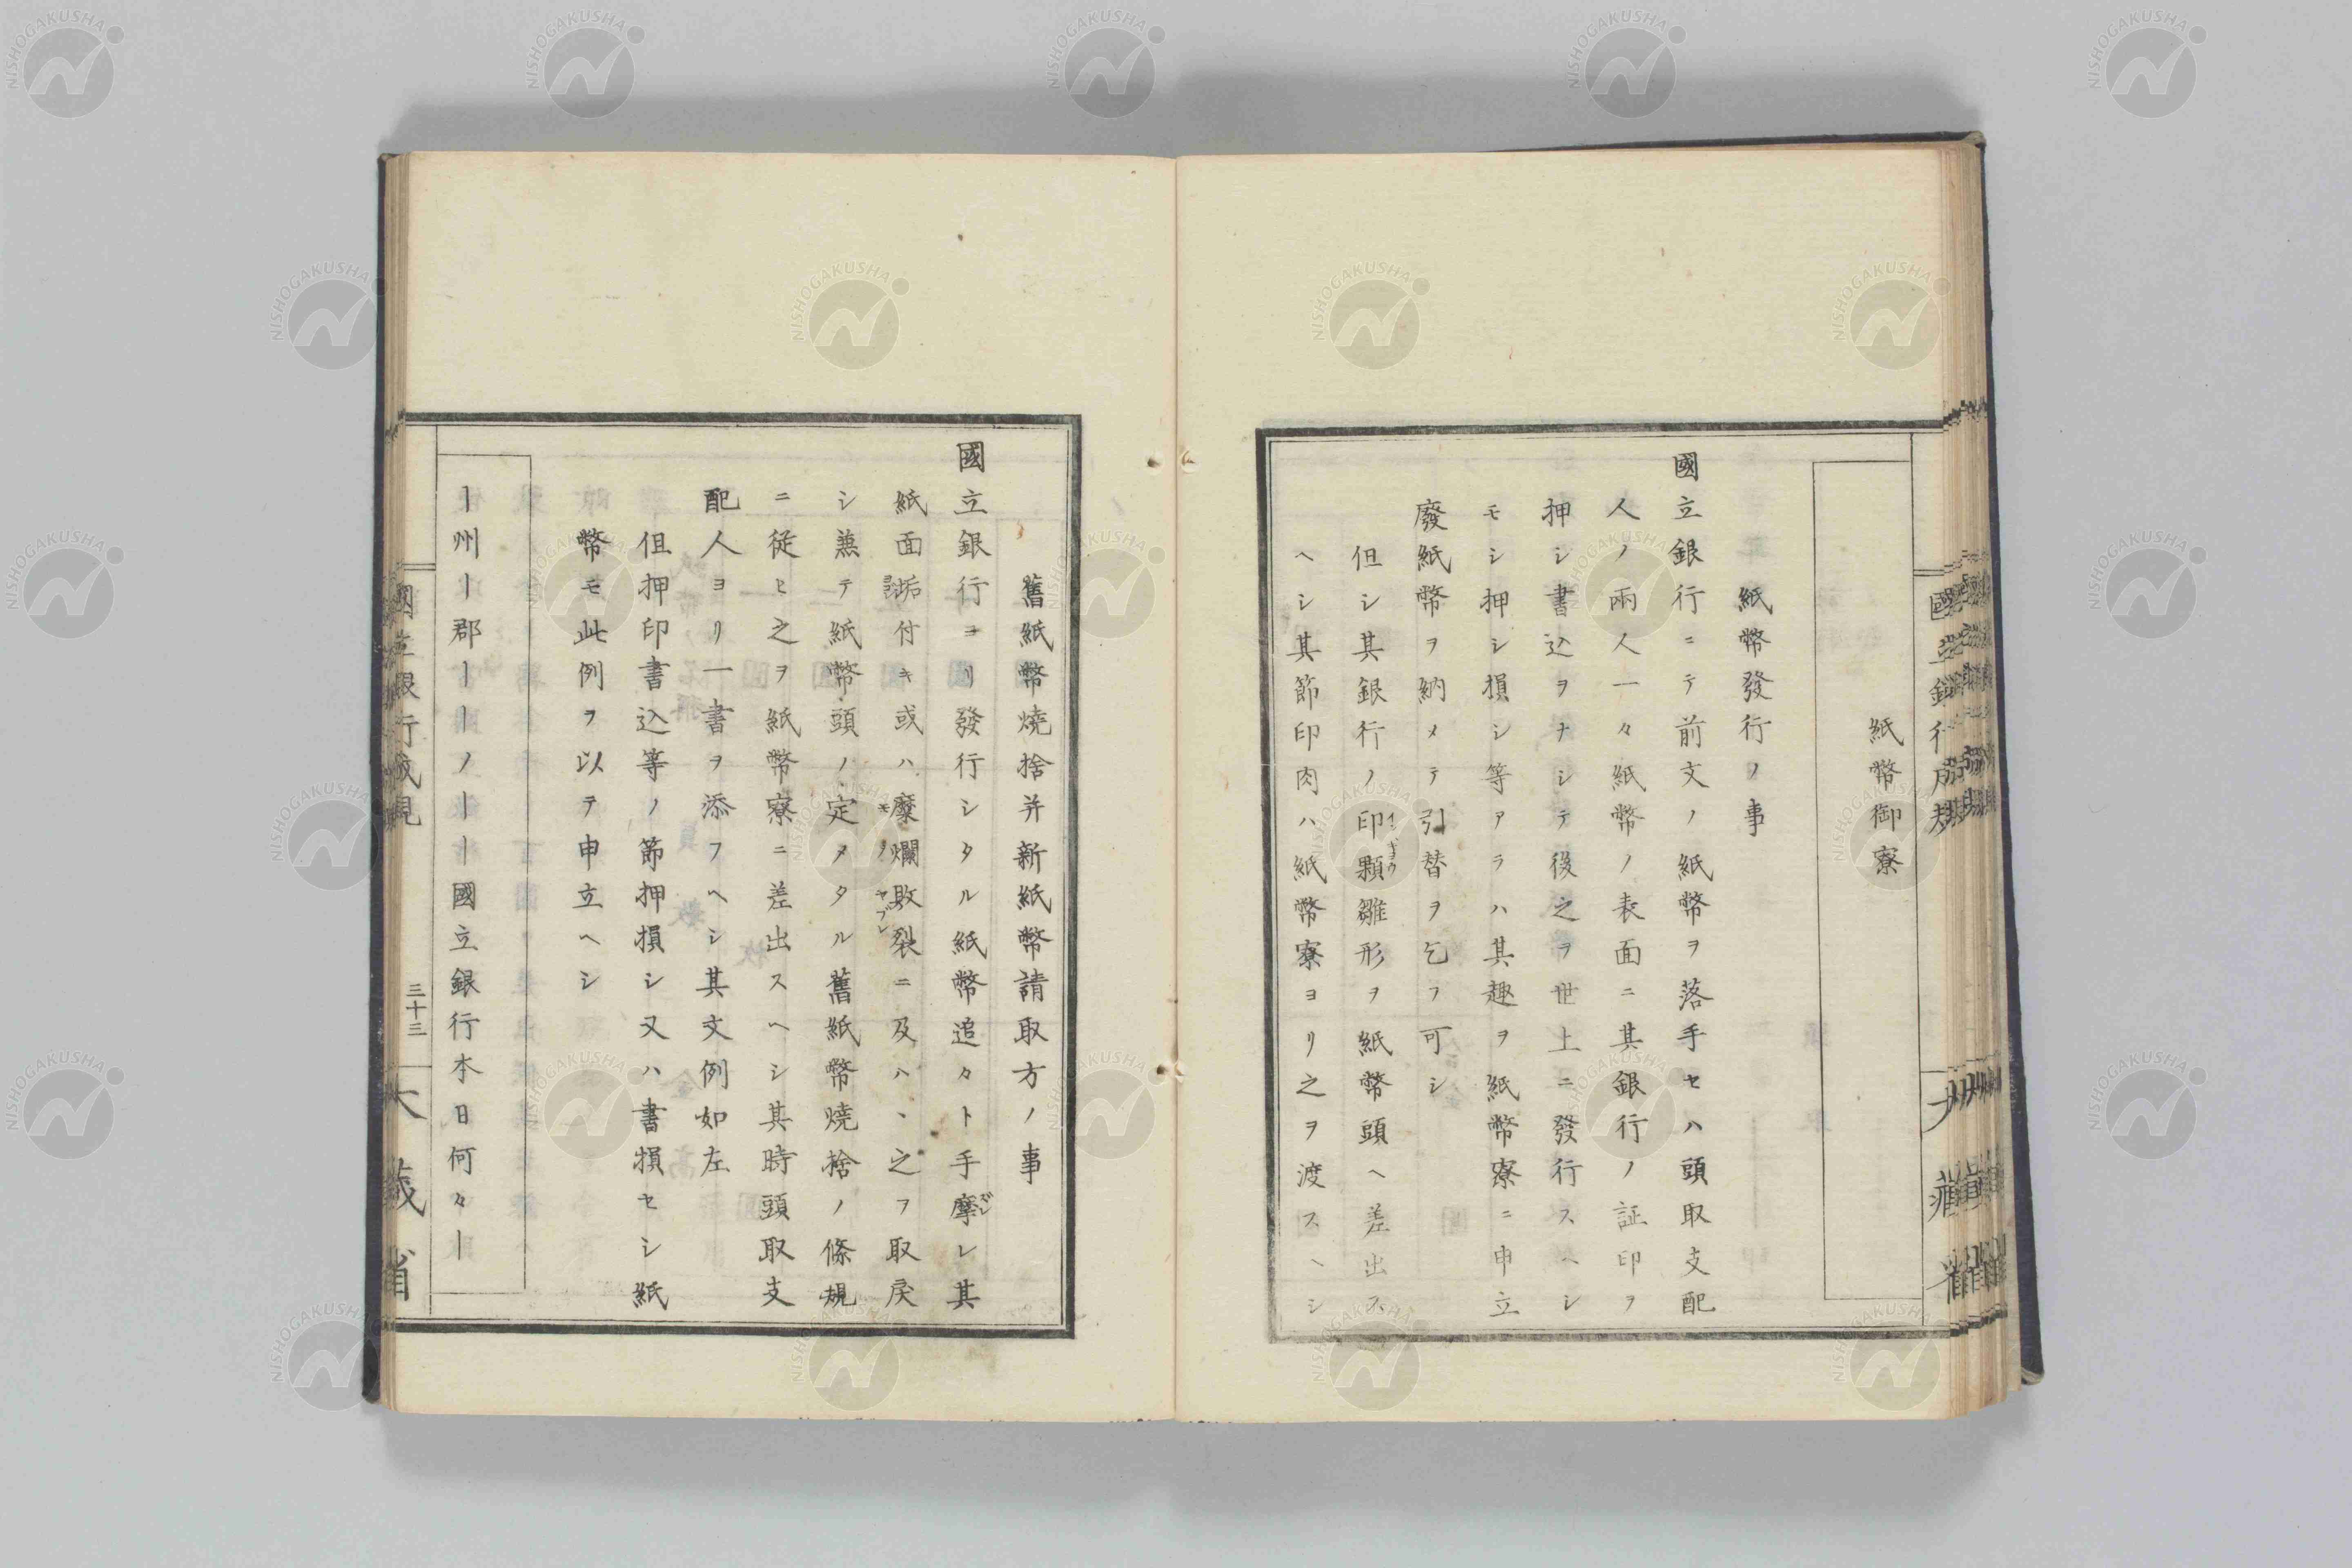 紙幣御寮
紙幣發行ノ事
國立銀行ニテ前文ノ紙幣ヲ落手セハ頭取支配
人ノ兩人一々紙幣ノ表面ニ其銀行ノ証印ヲ
押シ書込ヲナシテ後之ヲ世上ニ發行スヘシ
モシ押シ損シ等アラハ其趣ヲ紙幣寮ニ申立
廢紙幣ヲ納メテ引替ヲ乞フ可シ
但シ其銀行ノ印顆雛形ヲ紙幣頭ヘ差出ス
ヘシ其節印肉ハ紙幣寮ヨリ之ヲ渡スヘシ
舊紙幣燒捨并新紙幣請取方ノ事
國立銀行ヨリ發行シタル紙幣追々ト手摩レ其
紙面垢付キ或ハ糜爛敗裂ニ及ハヽ之ヲ取戾
シ兼テ紙幣頭ノ定メタル舊紙幣燒捨ノ條規
ニ從ヒ之ヲ紙幣寮ニ差出スヘシ其時頭取支
配人ヨリ一書ヲ添フヘシ其文例如左
但押印書込等ノ節押損シ又ハ書損セシ紙
幣モ此例ヲ以テ申立ヘシ
ー州ー郡ーーノーー國立銀行本日何々ー
國立銀行成規
三十三
大藏省
NISHOGAKUSHA